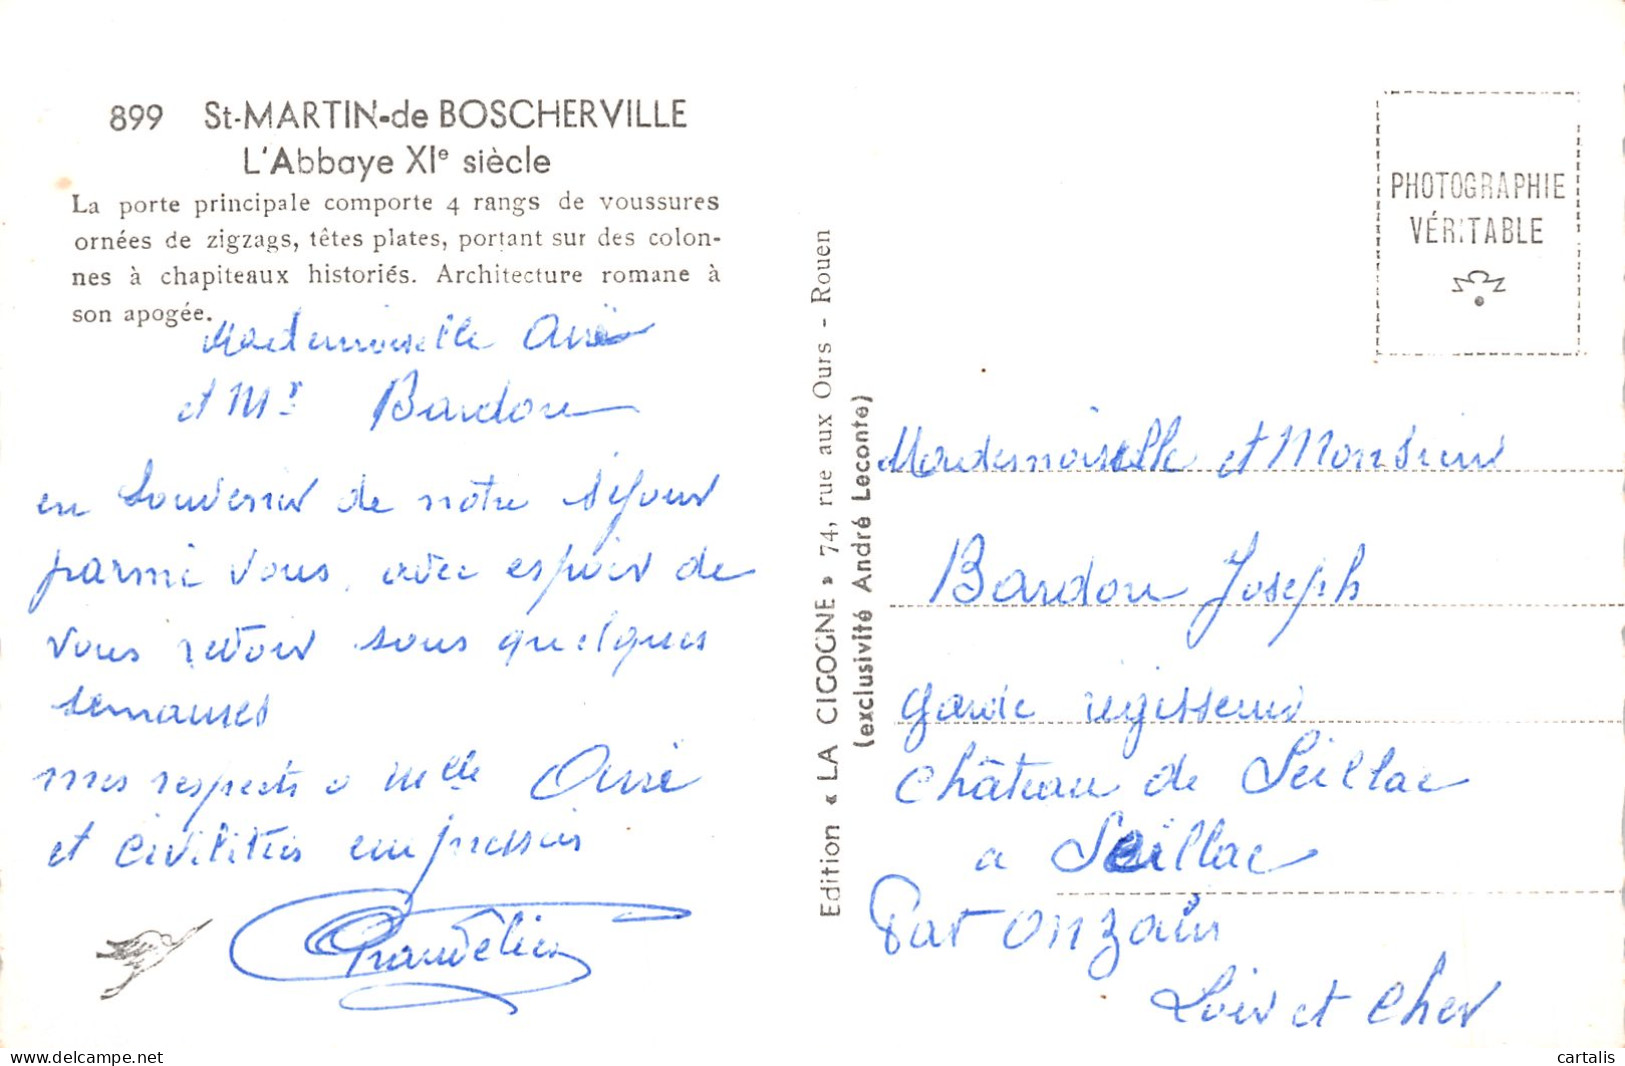 899 St-MARTIN-de BOSCHERVILLE
L'Abbaye XIe siècle
La porte principale comporte 4 rangs de voussures
ornées de zigzags, têtes plates, portant sur des colon-
nes à chapiteaux historiés. Architecture romane à
son apogée.
Mademoiselle
et Mr Bardou
en souvenir de notre séjour
parmi vous, avec espoir de
vous revoir sous quelques
semaines
mes respects a Melle
et civilités empressées
Edition « LA CIGOGNE » 74, rue aux Ours - Rouen
(exclusivité André Leconte)
PHOTOGRAPHIE
VÉRITABLE
Mademoiselle et Monsieur
Bardou Joseph
garde régisseur
Château de Seillac
a Seillac
Par Onzain
Loir et Cher
cartalis